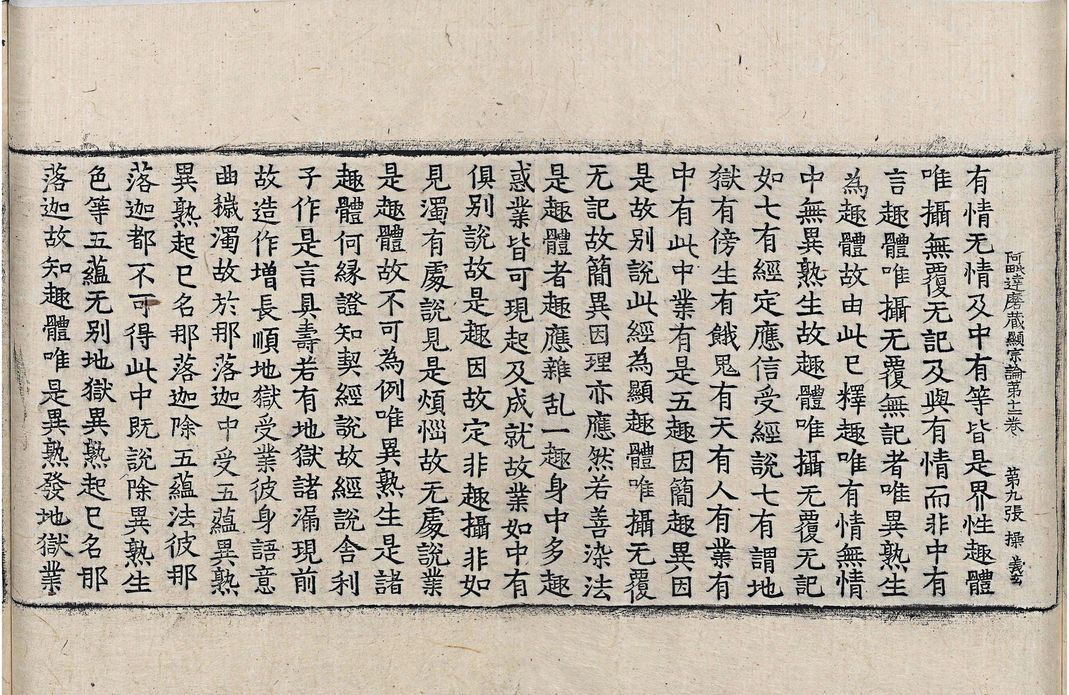 阿毗達磨藏顯宗論第十二卷　第九張　操
有情无情及中有等皆是界性趣體
唯攝無覆无記及與有情而非中有
言趣體唯攝无覆無記者唯異熟生
為趣體故由此已釋趣唯有情無情
中無異熟生故趣體唯攝无覆无記
如七有經定應信受經說七有謂地
獄有傍生有餓鬼有天有人有業有
中有此中業有是五趣因簡趣異因
是故别說此經為顯趣體唯攝无覆
无記故簡異因理亦應然若善染法
是趣體者趣應雜乱一趣身中多趣
惑業皆可現起及成就故業如中有
俱别說故是趣因故定非趣攝非如
見濁有處說見是煩惱故无處說業
是趣體故不可為例唯異熟生是諸
趣體何緣證知契經說故經說舍利
子作是言具壽若有地獄諸漏現前
故造作增長順地獄受業彼身語意
曲穢濁故於那落迦中受五蘊異熟
異熟起已名那落迦除五蘊法彼那
落迦都不可得此中既說除異熟生
色等五蘊无别地獄異熟起已名那
落迦故知趣體唯是異熟發地獄業